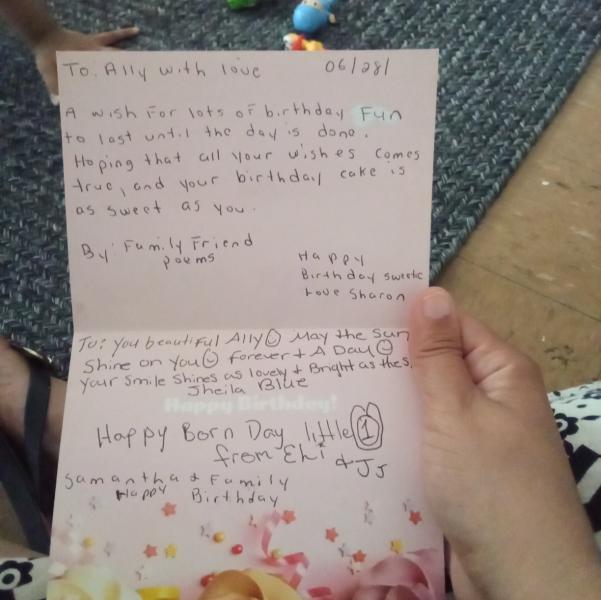 To: Ally with love 06/28/
A wish for lots of birthday Fun
to last until the day is done.
Hoping that all your wishes comes
true, and your birthday cake is
as sweet as you.
By: Family Friend
poems
Happy
Birthday sweetie
Love Sharon
To: You beautiful Ally☺ May the Sun
Shine on You☺ forever + A Day☺
your Smile Shines as lovely + Bright as the
Sheila Blue
Happy Birthday!
Happy Born Day little 1
from Eli & JJ
Samantha & Family
Happy Birthday